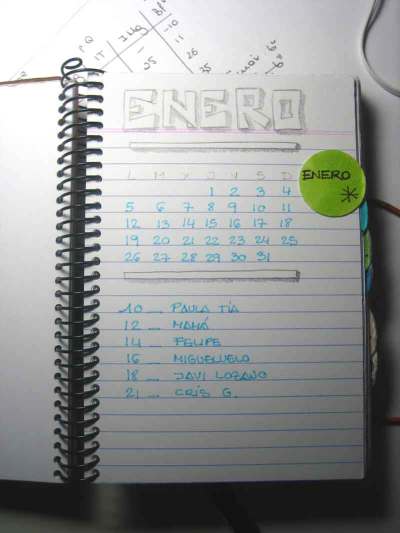 ENERO
L M X J V S D
1 2 3 4
5 6 7 8 9 10 11
12 13 14 15 16 17 18
19 20 21 22 23 24 25
26 27 28 29 30 31
ENERO
10 _ PAULA TÍA
12 _ MAMÁ
14 _ FELIPE
16 _ MIGUELUELO
18 _ JAVI LOZANO
21 _ CRIS G.